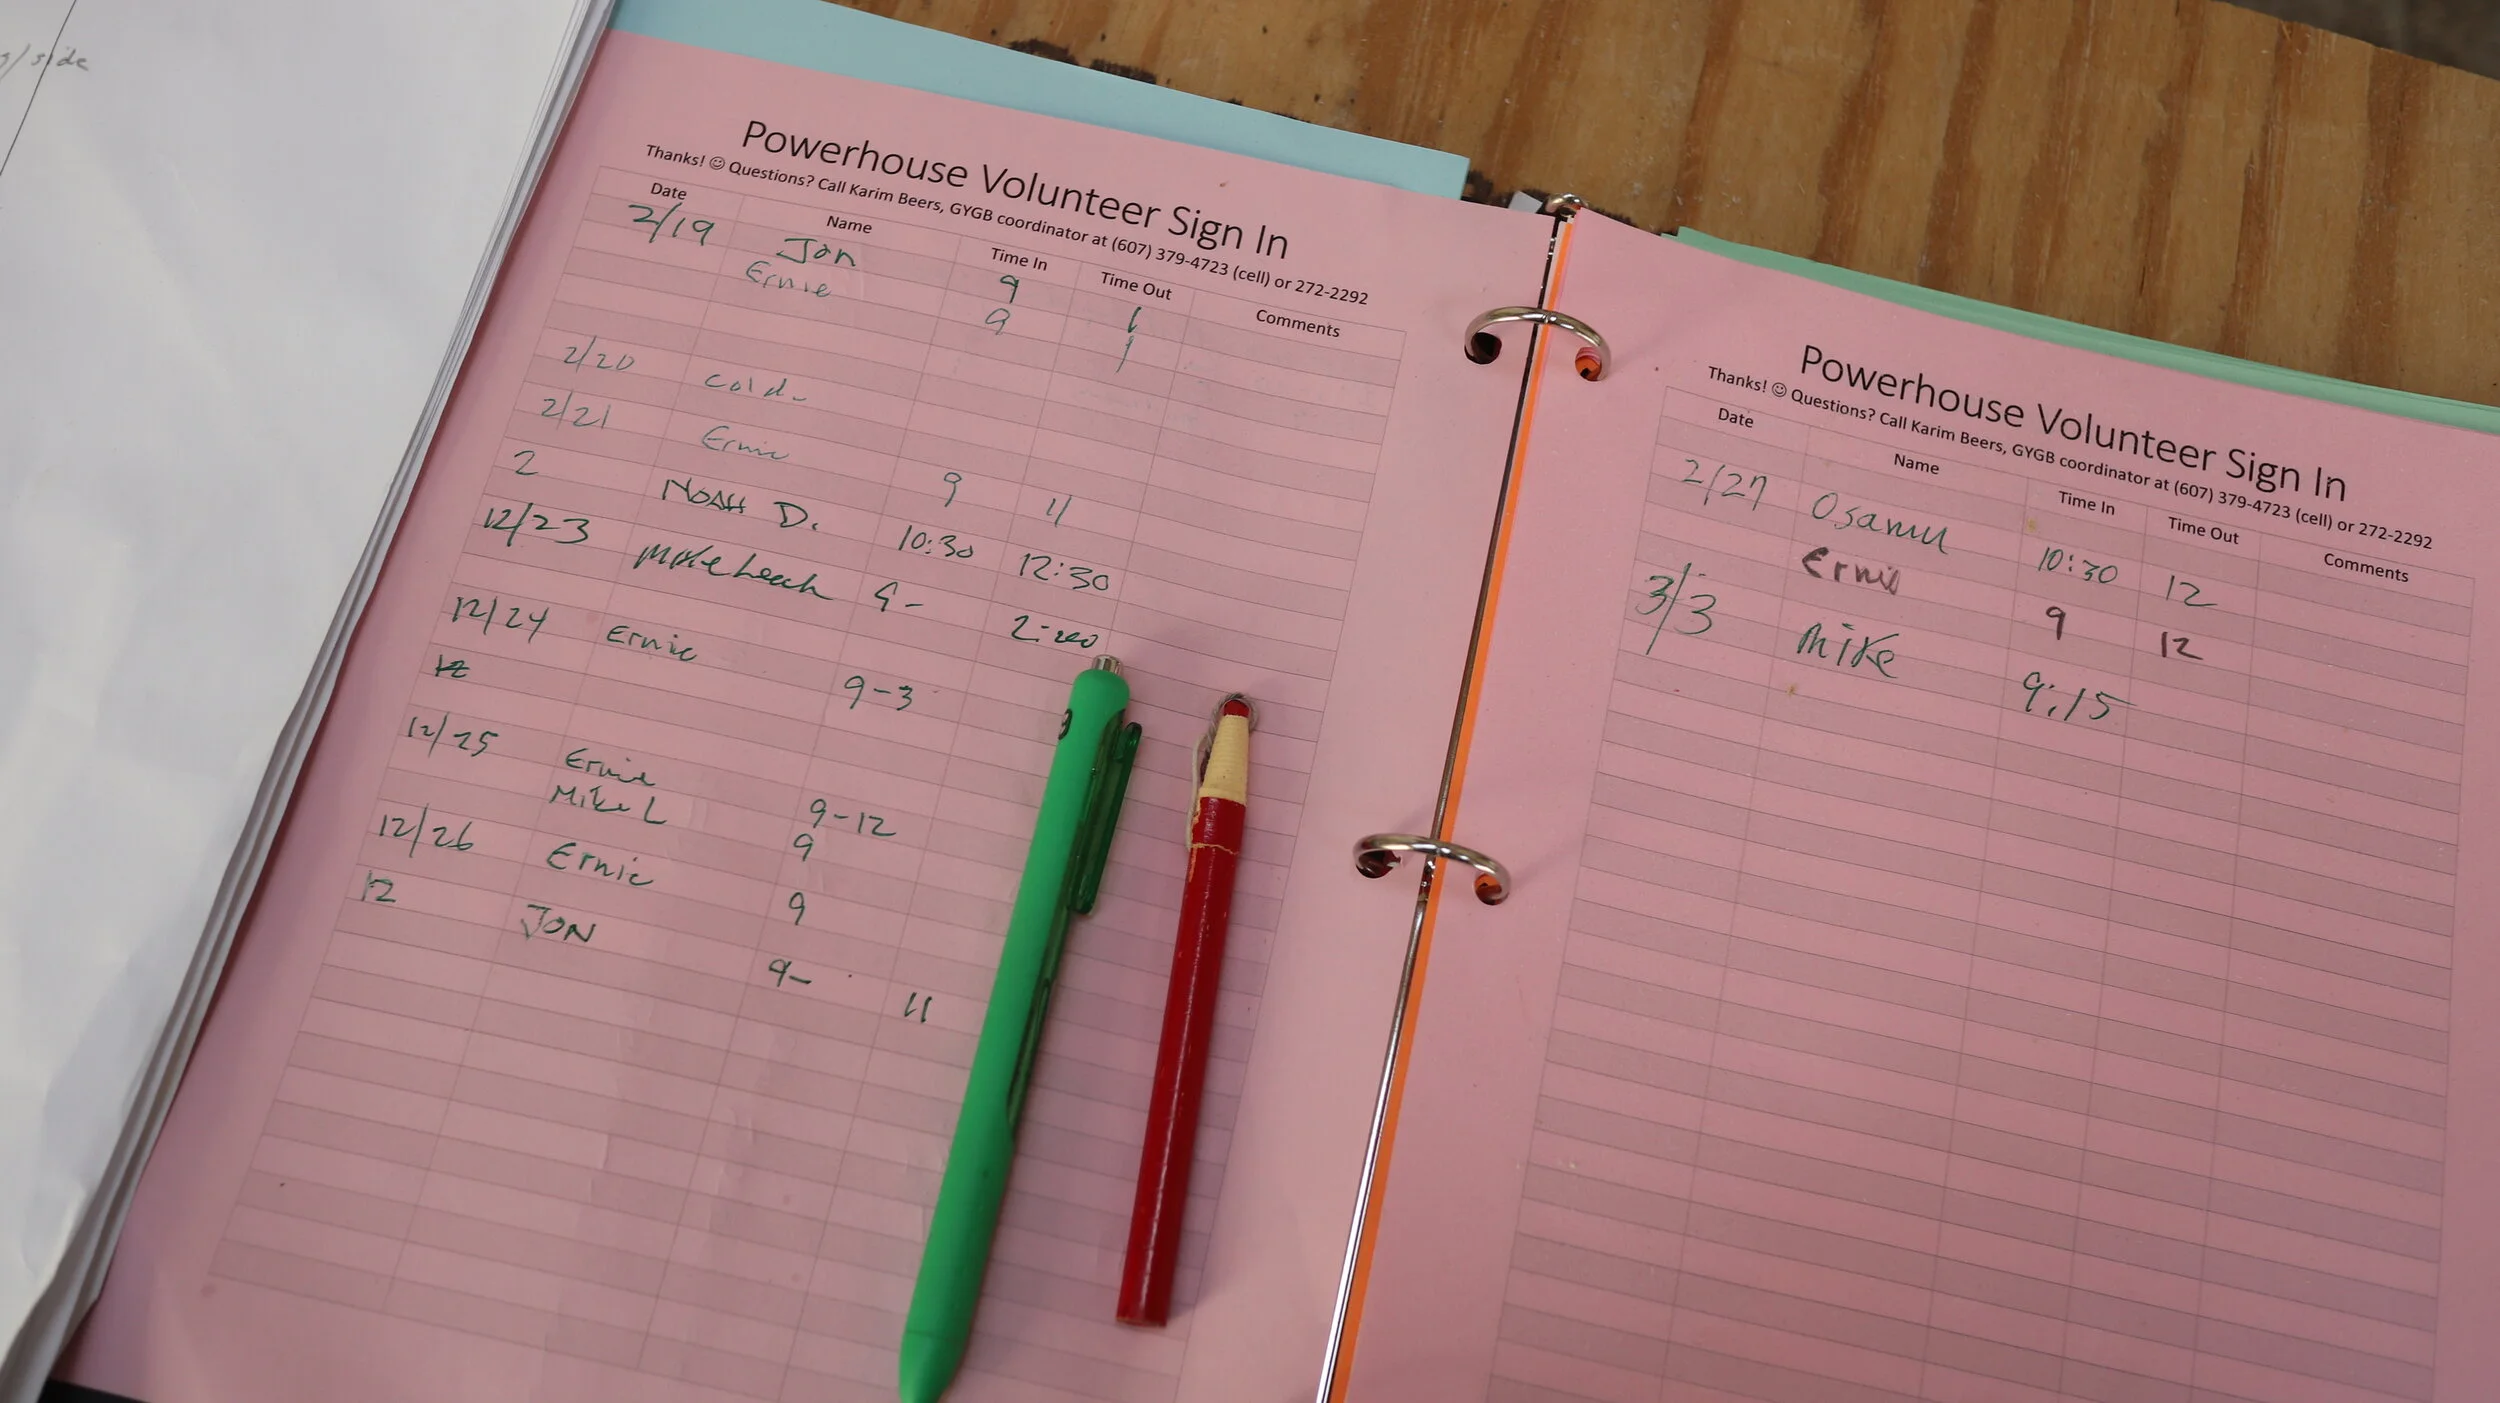 s/side
Powerhouse Volunteer Sign In
Thanks! ☺ Questions? Call Karim Beers, GYGB coordinator at (607) 379-4723 (cell) or 272-2292
Date Name Time In Time Out Comments
2/19 Jon 9 1
Ernie 9 1
2/20 cold-
2/21 Ernie 9 11
2 NOAH D. 10:30 12:30
12/23 Mike Leech 9- 2:00
12/24 Ernie 9-3
12
12/25 Ernie 9-12
Mike L 9
12/26 Ernie 9
12 JON 9- 11
Powerhouse Volunteer Sign In
Thanks! ☺ Questions? Call Karim Beers, GYGB coordinator at (607) 379-4723 (cell) or 272-2292
Date Name Time In Time Out Comments
2/27 Osamu 10:30 12
Ernie 9 12
3/3 Mike 9:15